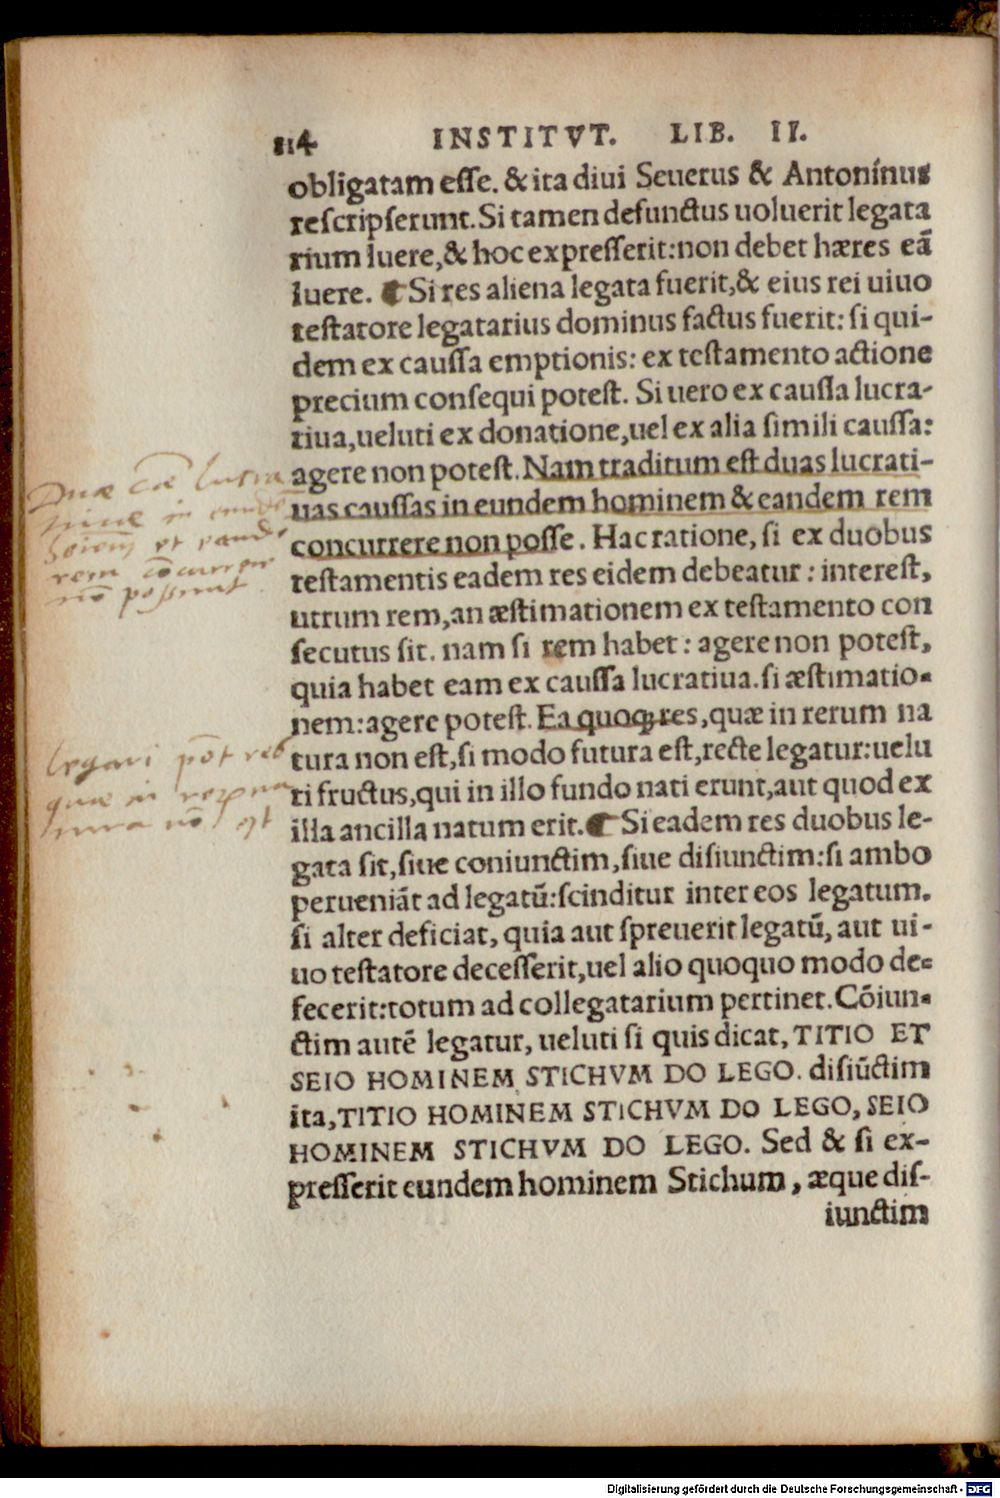 114 INSTITVT. LIB. II.
obligatam esse. & ita diui Seuerus & Antonínus
rescripserunt. Si tamen defunctus uoluerit legata
rium luere, & hoc expresserit: non debet hæres eã
luere. ☙ Si res aliena legata fuerit, & eius rei uiuo
testatore legatarius dominus factus fuerit: si qui-
dem ex caussa emptionis: ex testamento actione
precium consequi potest. Si uero ex caussa lucra-
tiua, ueluti ex donatione, uel ex alia simili caussa:
agere non potest. Nam traditum est duas lucrati-
uas caussas in eundem hominem & eandem rem
concurrere non posse. Hac ratione, si ex duobus
testamentis eadem res eidem debeatur: interest,
utrum rem, an æstimationem ex testamento con
secutus sit. nam si rem habet: agere non potest,
quia habet eam ex caussa lucratiua. si æstimatio-
nem: agere potest. Ea quoqꝫ res, quæ in rerum na
tura non est, si modo futura est, recte legatur: uelu
ti fructus, qui in illo fundo nati erunt, aut quod ex
illa ancilla natum erit. ☙ Si eadem res duobus le-
gata sit, siue coniunctim, siue disiunctim: si ambo
perueniãt ad legatũ: scinditur inter eos legatum.
si alter deficiat, quia aut spreuerit legatũ, aut ui-
uo testatore decesserit, uel alio quoquo modo de-
fecerit: totum ad collegatarium pertinet. Cõiun-
ctim autẽ legatur, ueluti si quis dicat, TITIO ET
SEIO HOMINEM STICHVM DO LEGO. disiũctim
ita, TITIO HOMINEM STICHVM DO LEGO, SEIO
HOMINEM STICHVM DO LEGO. Sed & si ex-
presserit eundem hominem Stichum, æque dis-
iunctim
Duæ cãe lucra
tiuæ in eund
et eand
rem cõcurrere
nõ possunt
legari põt res
quæ in rerum na
tura nõ est
Digitalisierung gefördert durch die Deutsche Forschungsgemeinschaft - DFG